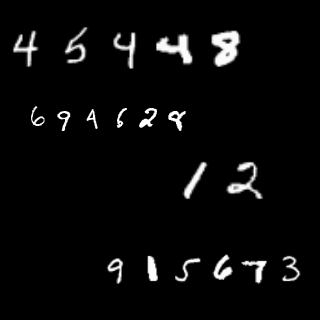 45448
694628
12
915673